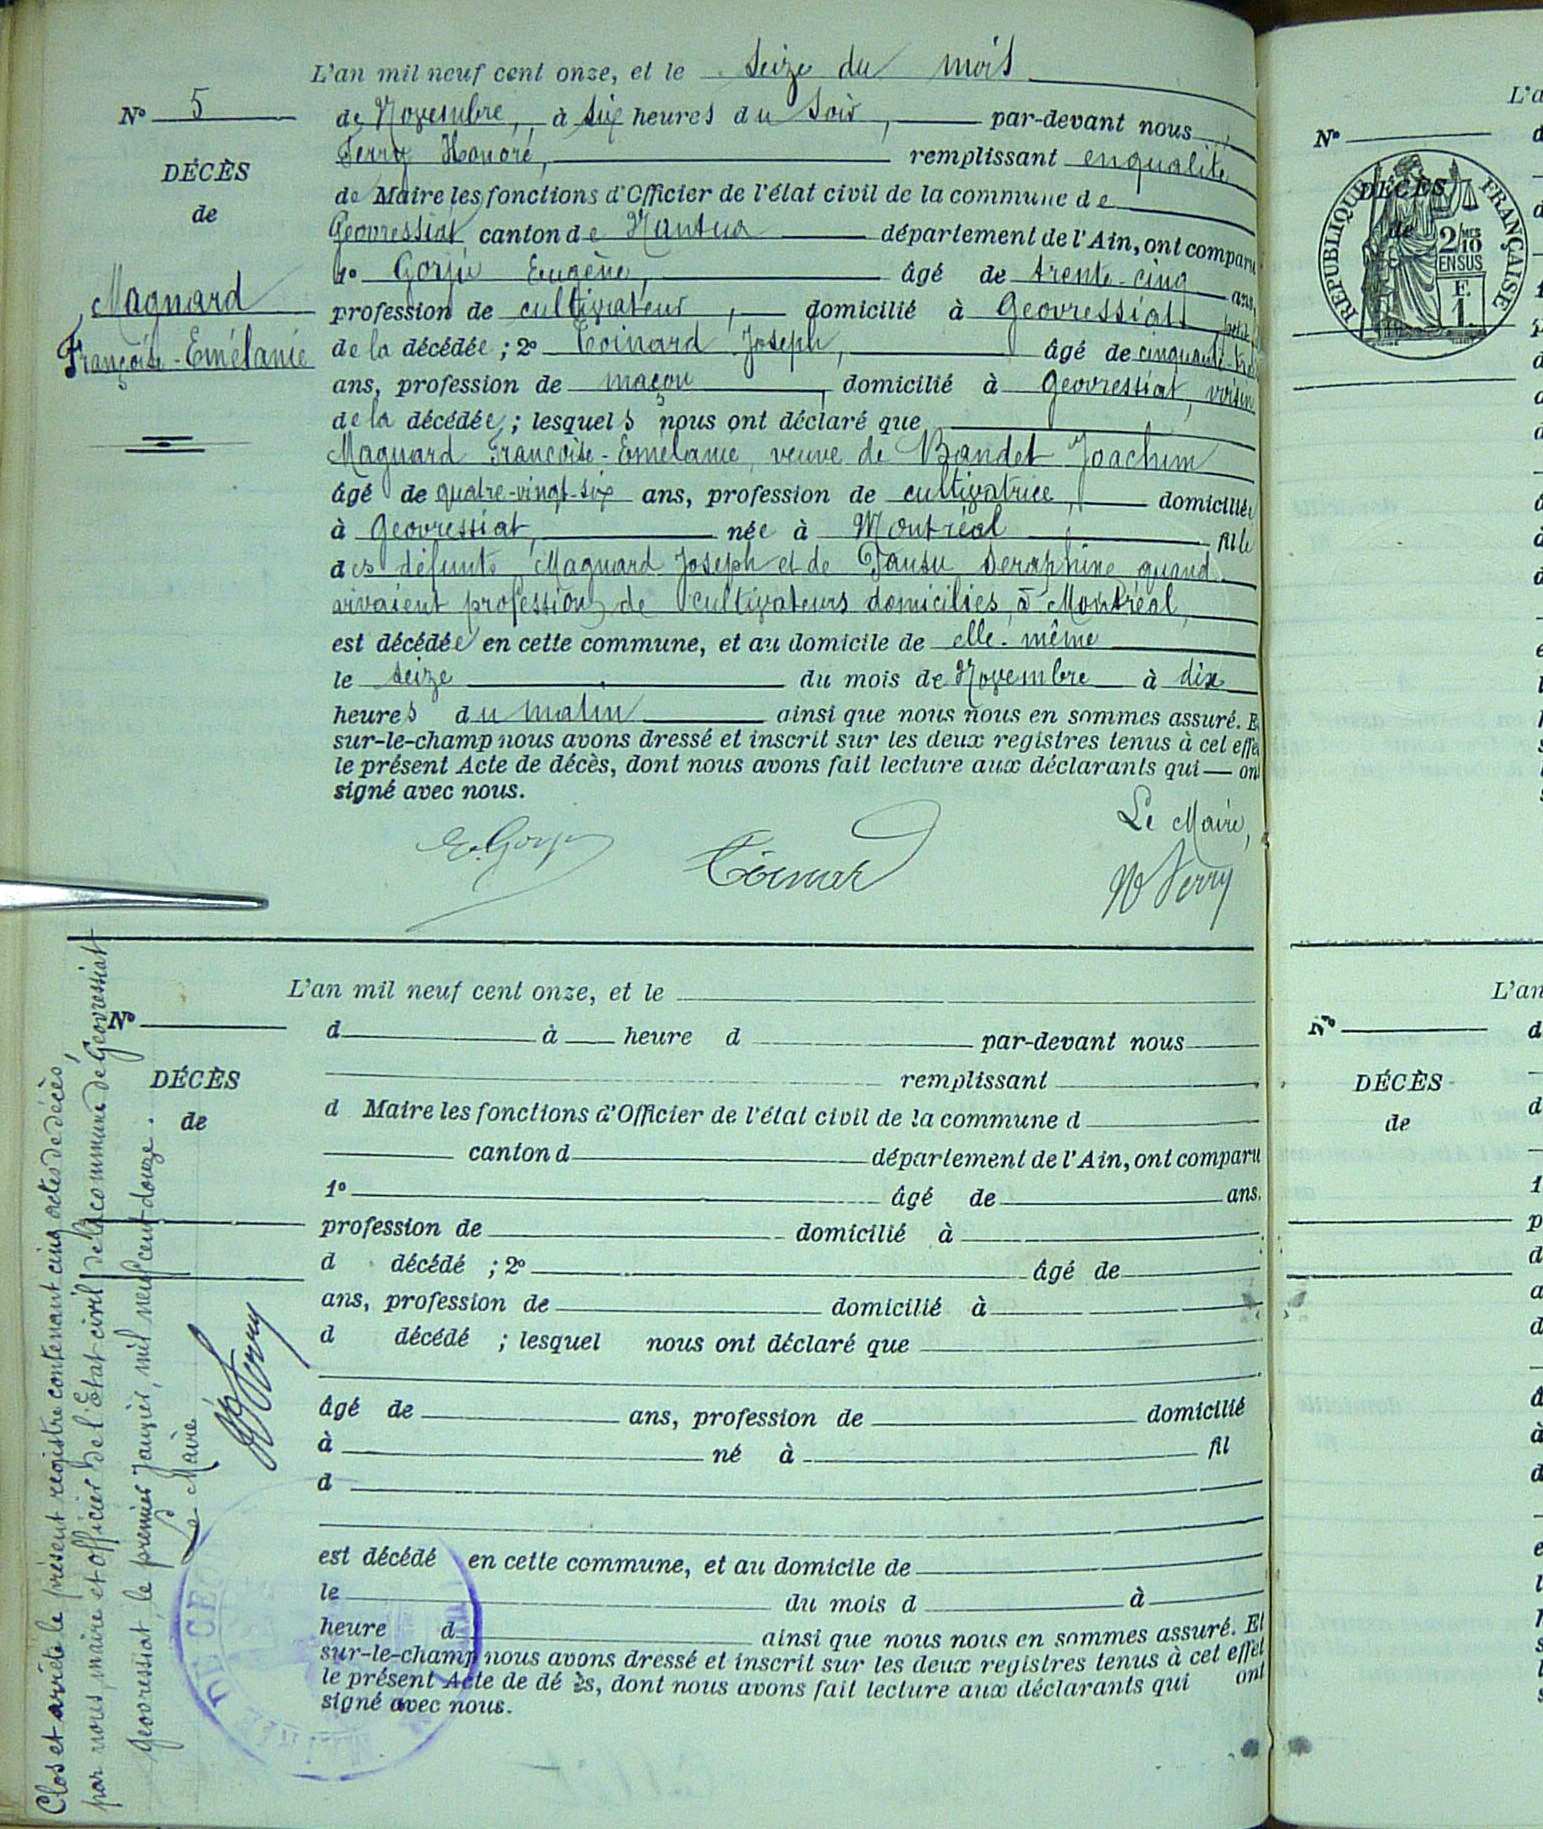 L'an mil neuf cent onze, et le seize du mois
N° 5
de Novembre, à six heures du soir, par-devant nous
Ferry Honoré, remplissant en qualité
DÉCÈS
de
de Maire les fonctions d'Officier de l'état civil de la commune de
Geovressiat canton de Nantua département de l'Ain, ont comparu
1° Eugène, âgé de trente-cinq ans,
Magnard
Françoise-Emélanie
profession de cultivateur, domicilié à Geovressiat, petit
de la décédée; 2° Toinard Joseph, âgé de cinquante
ans, profession de maçon, domicilié à Geovressiat, voisin
de la décédée; lesquels nous ont déclaré que
Magnard Françoise-Emélanie, veuve de Bandet Joachim
âgé de quatre-vingt-six ans, profession de cultivatrice, domiciliée
à Geovressiat, née à Montréal fille
des défunts Magnard Joseph et de Seraphine quand
vivaient profession de cultivateurs domiciliés à Montréal,
est décédée en cette commune, et au domicile de elle-même
le seize du mois de Novembre à dix
heures du matin ainsi que nous nous en sommes assuré. Et
sur-le-champ nous avons dressé et inscrit sur les deux registres tenus à cet effet
le présent Acte de décès, dont nous avons fait lecture aux déclarants qui ont
signé avec nous.
Le Maire,
Ferry
L'an mil neuf cent onze, et le
N°
d à heure d par-devant nous
remplissant
DÉCÈS
de
d Maire les fonctions d'Officier de l'état civil de la commune d
canton d département de l'Ain, ont comparu
1° âgé de ans,
profession de domicilié à
d décédé ; 2° âgé de
ans, profession de domicilié à
d décédé ; lesquel nous ont déclaré que
âgé de ans, profession de domicilié
à né à fil
d
est décédé en cette commune, et au domicile de
le du mois d à
heure d ainsi que nous nous en sommes assuré. Et
sur-le-champ nous avons dressé et inscrit sur les deux registres tenus à cet effet
le présent Acte de dé ès, dont nous avons fait lecture aux déclarants qui ont
signé avec nous.
Clos et arrêté le présent registre contenant cinq actes de décès,
par nous, maire et officier de l'Etat civil de la commune de Geovressiat
Geovressiat, le premier Janvier, mil neuf cent douze.
Le Maire
Ferry
L'a
N°
DÉCÈS
de
RÉPUBLIQUE FRANÇAISE
2/10
MES
EN SUS
E.
1.
L'an
N°
DÉCÈS
de